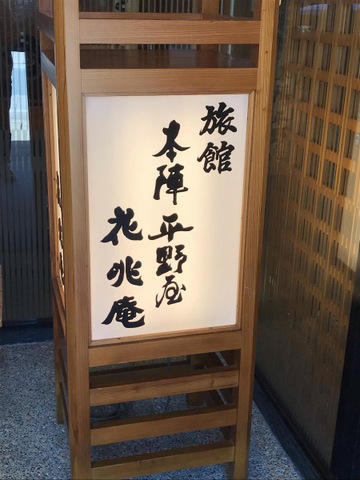 旅館
本陣平野屋
花兆庵